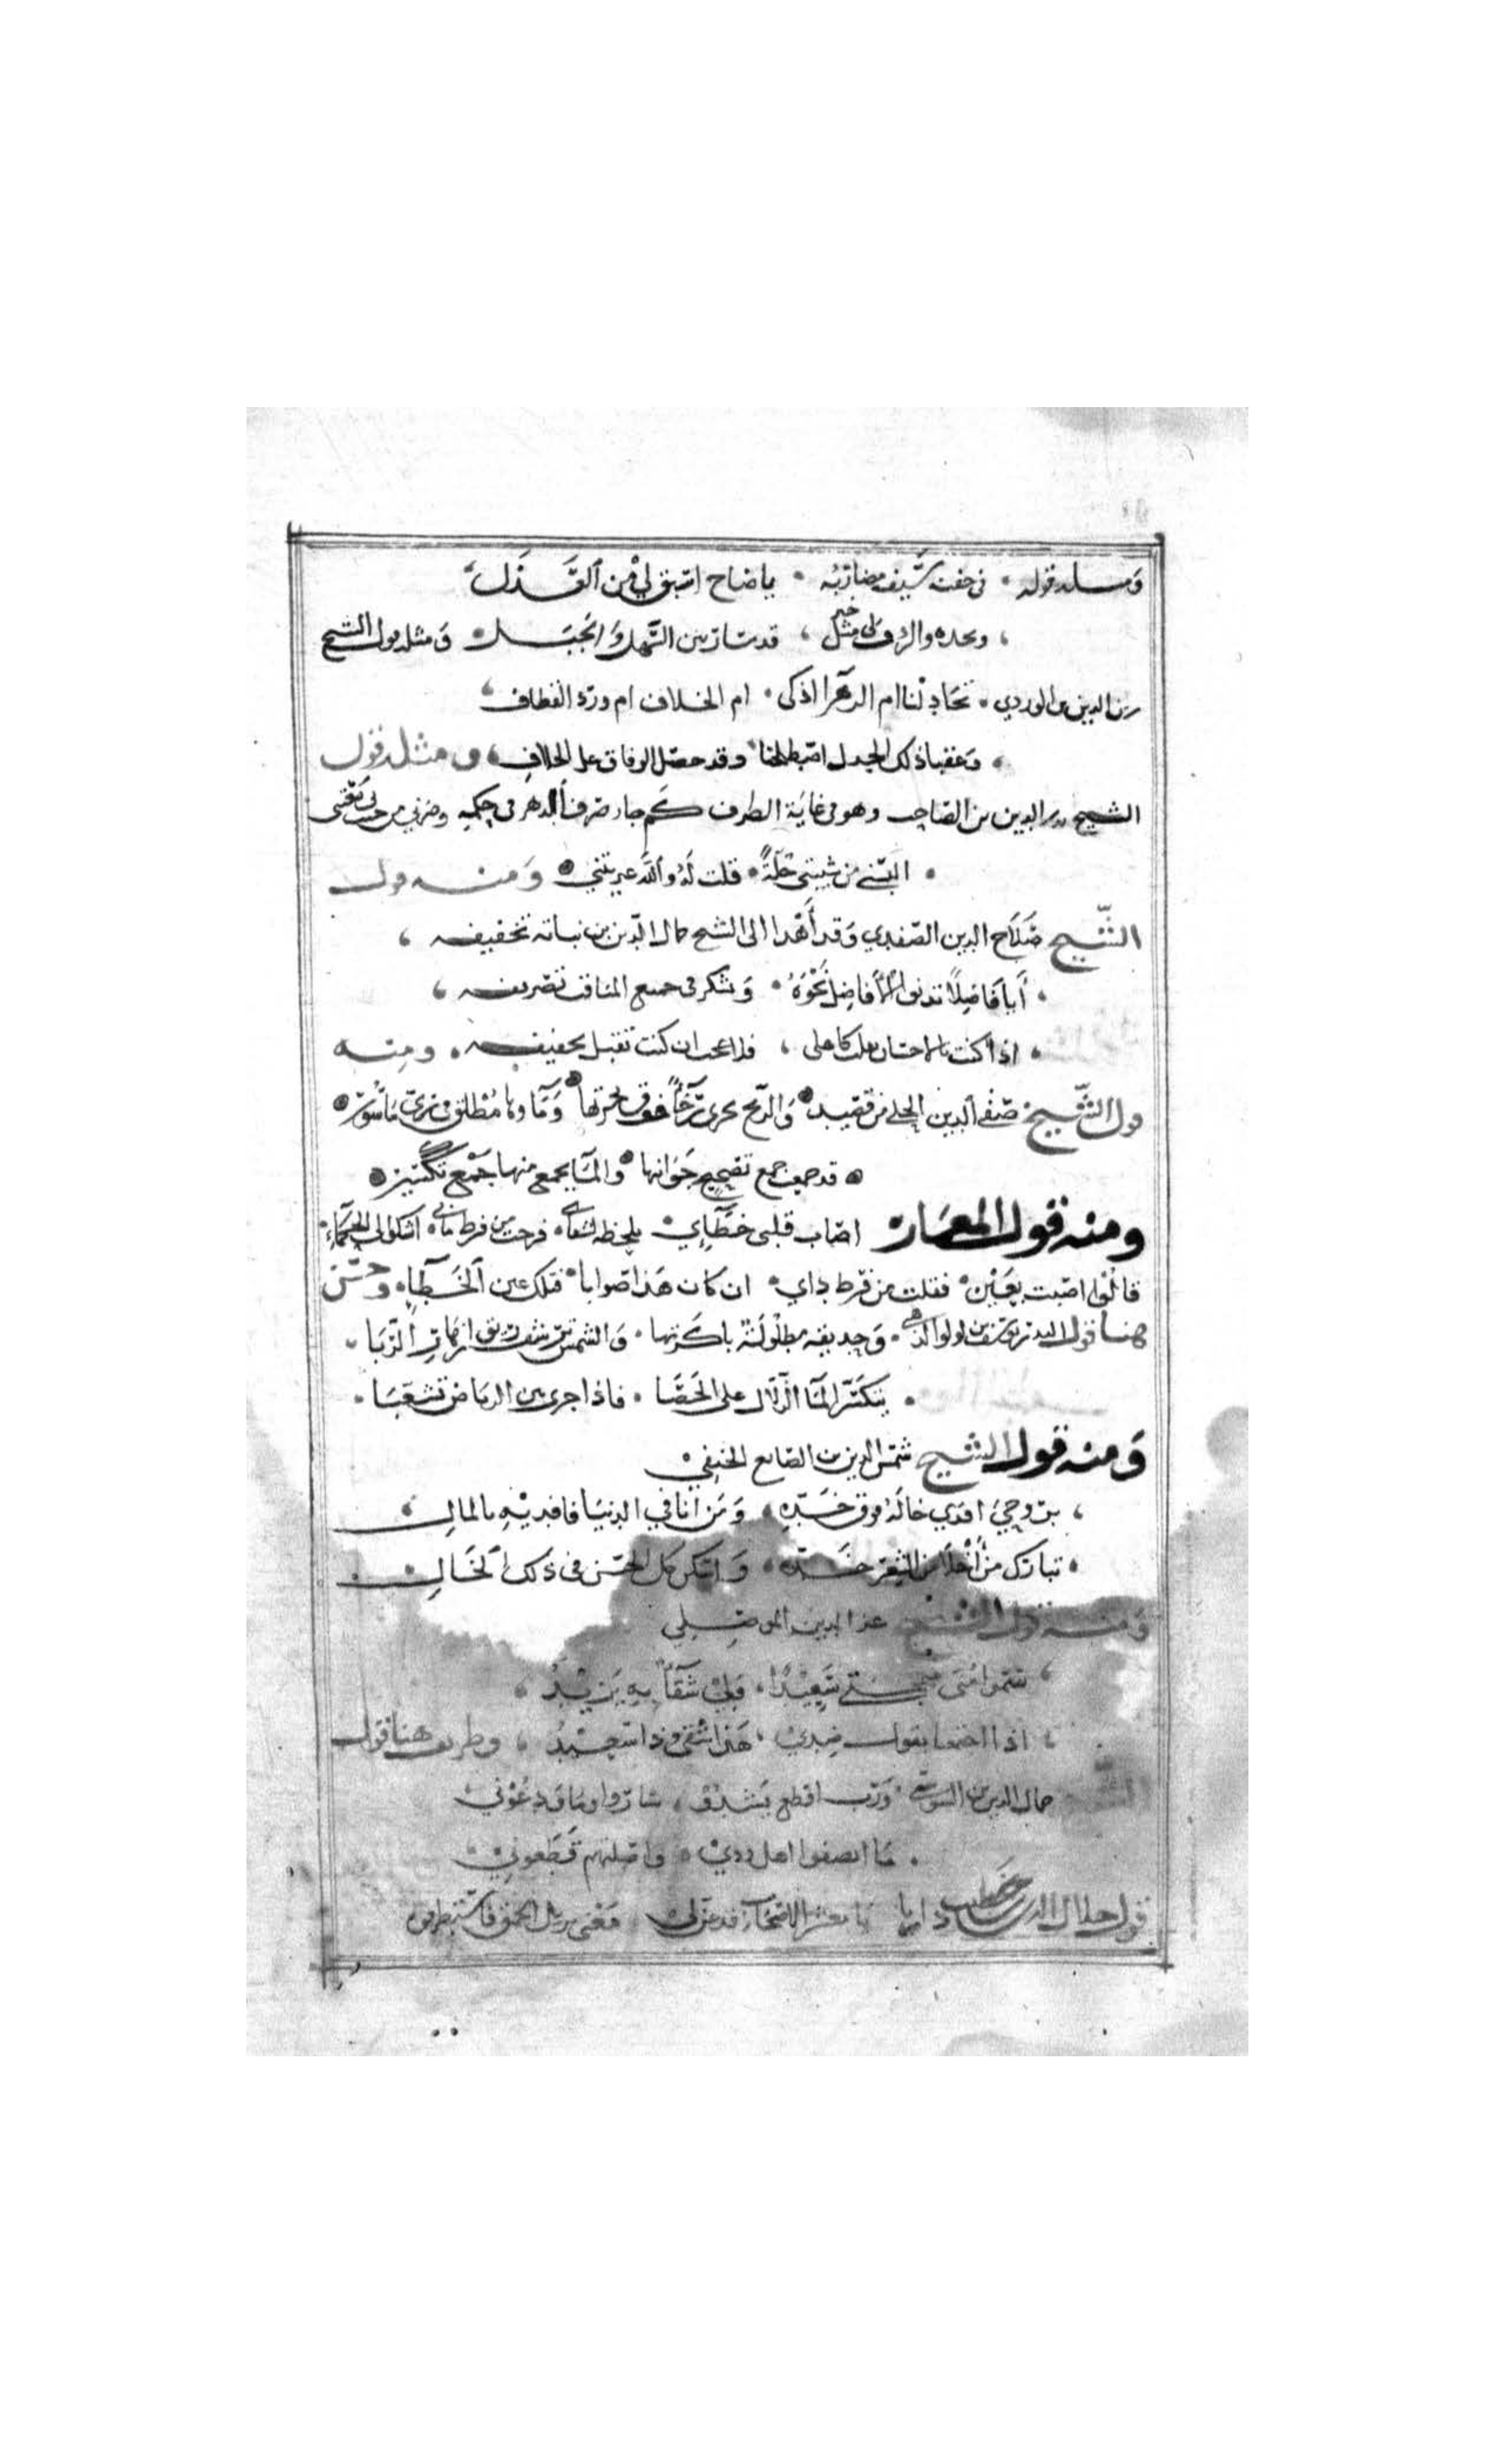 ومثله قوله في جفنه سيف مضاربه يا صاح اسبق لي من العذل
وخده والردف لي مثل خير قد سار بين السهل والجبل ومثله قول الشيخ
زين الدين بن الوردي تجادلنا ام الزهرا اذكى ام الخلاف ام ورد القطاف
وعقبا ذلك الجدل اصطلحنا وقد حصل الوفاق على الخلاف ومثله قول
الشيخ بدر الدين بن الصاحب وهو في غاية الظرف كم جار صرف الدهر في حكمه وضرني من حيث بي يعتني
البسني من شيبتي حلة قلت له والله عريتني ومنه قول
الشيخ صلاح الدين الصفدي وقد أهدا الى الشيخ جمال الدين بن نباتة تخفيفه
أيا فاضلا تدنوا الأفاضل نحوه ويشكر في جميع المناقب تصريفه
اذا كنت بالاحسان ثقلت كاهلي فلا عجب ان كنت تقبل تخفيفه ومنه
قول الشيخ صفي الدين الحلي من قصيد والريح تجري رخاء فوق بحرتها وماوها مطلق في زي مأسور
قد جمعت جمع تصحيح جوانبها والماء يجمع منها جمع تكسير
ومنه قول المعمار اصاب قلبي خطاي بلحظه فرحت من فرط مابي اشكوا الى الحكماء
قالوا اصبت بعين فقلت من فرط داي ان كان هذا صوابا فتلك عين الخطاء وحسن
هنا قول البدر يوسف بن لولو الذهبي وحديقة مطلولة باكرتها والشمس ترشف ريق ازهار الربا
يتكسر الماء الزلال على الحصا فاذا جرى بين الرياض تشعبا
ومنه قول الشيخ شمس الدين بن الصايغ الحنفي
بروحي افدي خاله فوق خده ومن انا في الدنيا فافديه بالمال
تبارك من أخلا من الشعر خده واسكن كل الحسن في ذلك الخال
ومنه قول الشيخ عز الدين الموصلي
سموا منى مهجتي سعيدا ولي شقاء به يزيد
اذا اجتمعنا يقول ضدي هذا شقي وذا سعيد وظريف هنا قول
الشيخ جمال الدين بن السوسي ورب اقطع يشدو ساروا وما ودعوني
ما انصفوا اهل ودي واصلتهم قطعوني
قول جلال الدين خطيب داريا يا معشر الاصحاب قد عن لي